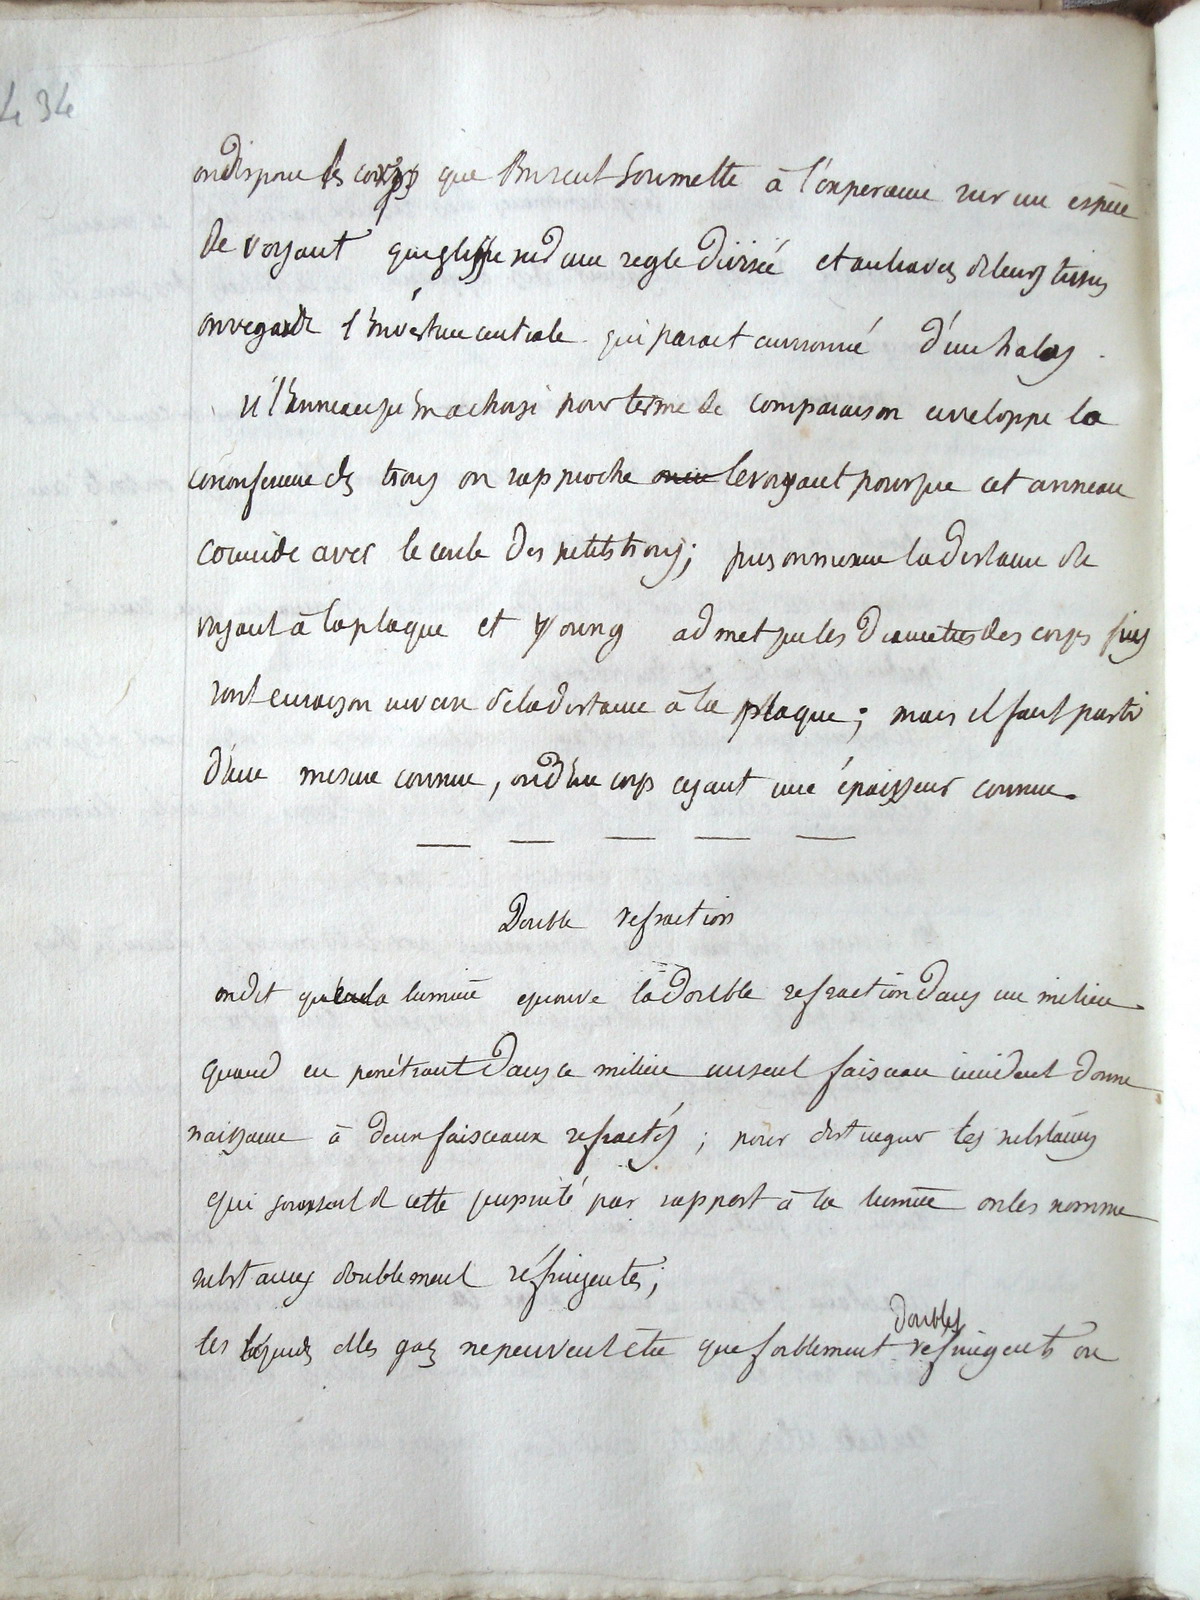 434
on dispose les corps que l'on veut soumettre à l'experience sur une espèce
de voyant qui glisse sur une regle divisée et au travers de leurs tissus
on regarde l'ouverture centrale qui parait environné d'un halos.
si l'anneau qu'on a choisi pour terme de comparaison enveloppe la
circonference des trous on rapproche le voyant pour que cet anneau
coincide avec le cercle des petits trous; puis on mesure la distance de
voyant à la plaque et Young admet que les diametres des corps fins
sont en raison inverse de la distance à la plaque; mais il faut partir
d'une mesure connue, ou d'un corps ayant une épaisseur connue.
Double refraction
on dit que la lumière eprouve la double refraction dans un milieu
quand en penétrant dans ce milieu un seul faisceau incident donne
naissance à deux faisceaux refractés; pour distinguer les substances
qui jouissent de cette propriété par rapport à la lumière on les nomme
substances doublement réfringentes;
doubles
les liquides et les gaz ne peuvent être que foiblement refringents ou